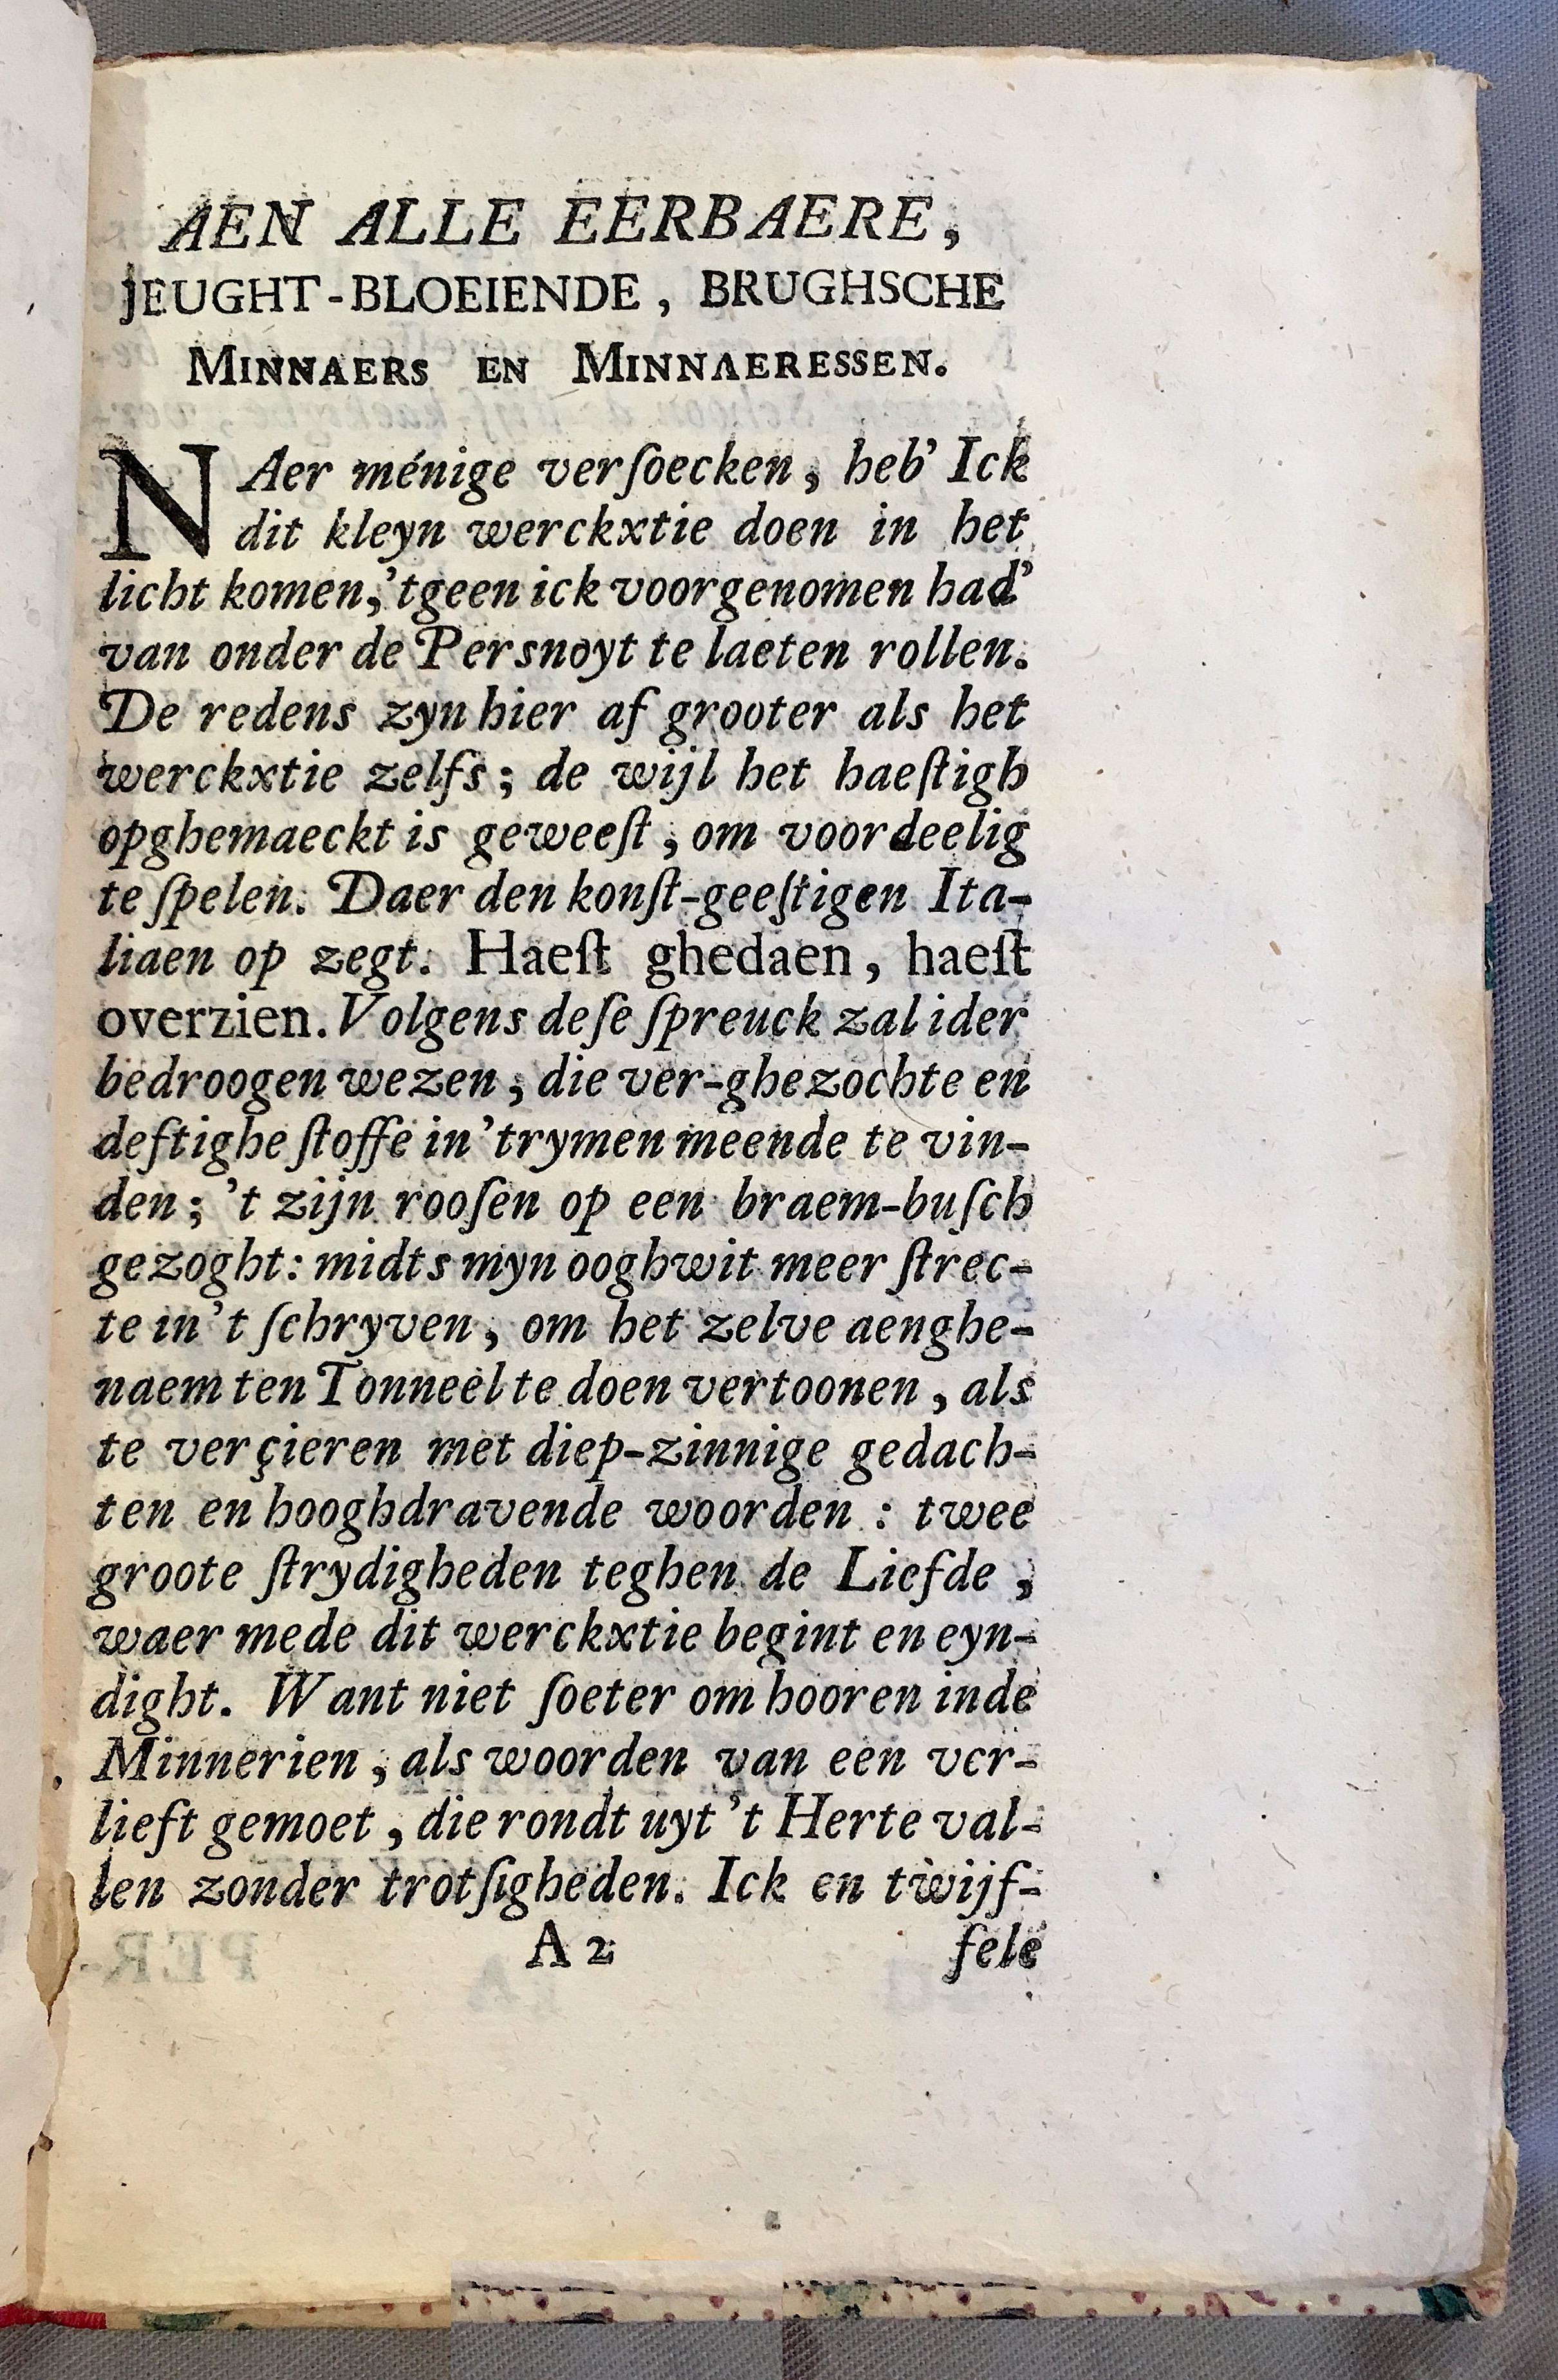 AEN ALLE EERBAERE,
JEUGHT-BLOEIENDE, BRUGHSCHE
MINNAERS EN MINNAERESSEN.
NAer ménige verſoecken, heb' Ick
dit kleyn werckxtie doen in het
licht komen, 'tgeen ick voorgenomen had'
van onder de Pers noyt te laeten rollen.
De redens zyn hier af grooter als het
werckxtie zelfs; de wijl het haeſtigh
opghemaeckt is geweeſt, om voordeelig
te ſpelen. Daer den konſt-geeſtigen Ita-
liaen op zegt. Haeſt ghedaen, haeſt
overzien. Volgens deſe ſpreuck zal ider
bedroogen wezen, die ver-ghezochte en
deftighe ſtoffe in 'trymen meende te vin-
den; 't zijn rooſen op een braem-buſch
gezoght: midts myn ooghwit meer ſtrec-
te in 't ſchryven, om het zelve aenghe-
naem ten Tonneel te doen vertoonen, als
te verçieren met diep-zinnige gedach-
ten en hooghdravende woorden: twee
groote ſtrydigheden teghen de Liefde,
waer mede dit werckxtie begint en eyn-
dight. Want niet ſoeter om hooren inde
Minnerien, als woorden van een ver-
lieft gemoet, die rondt uyt 't Herte val-
len zonder trotſigheden. Ick en twijf-
A 2 fele